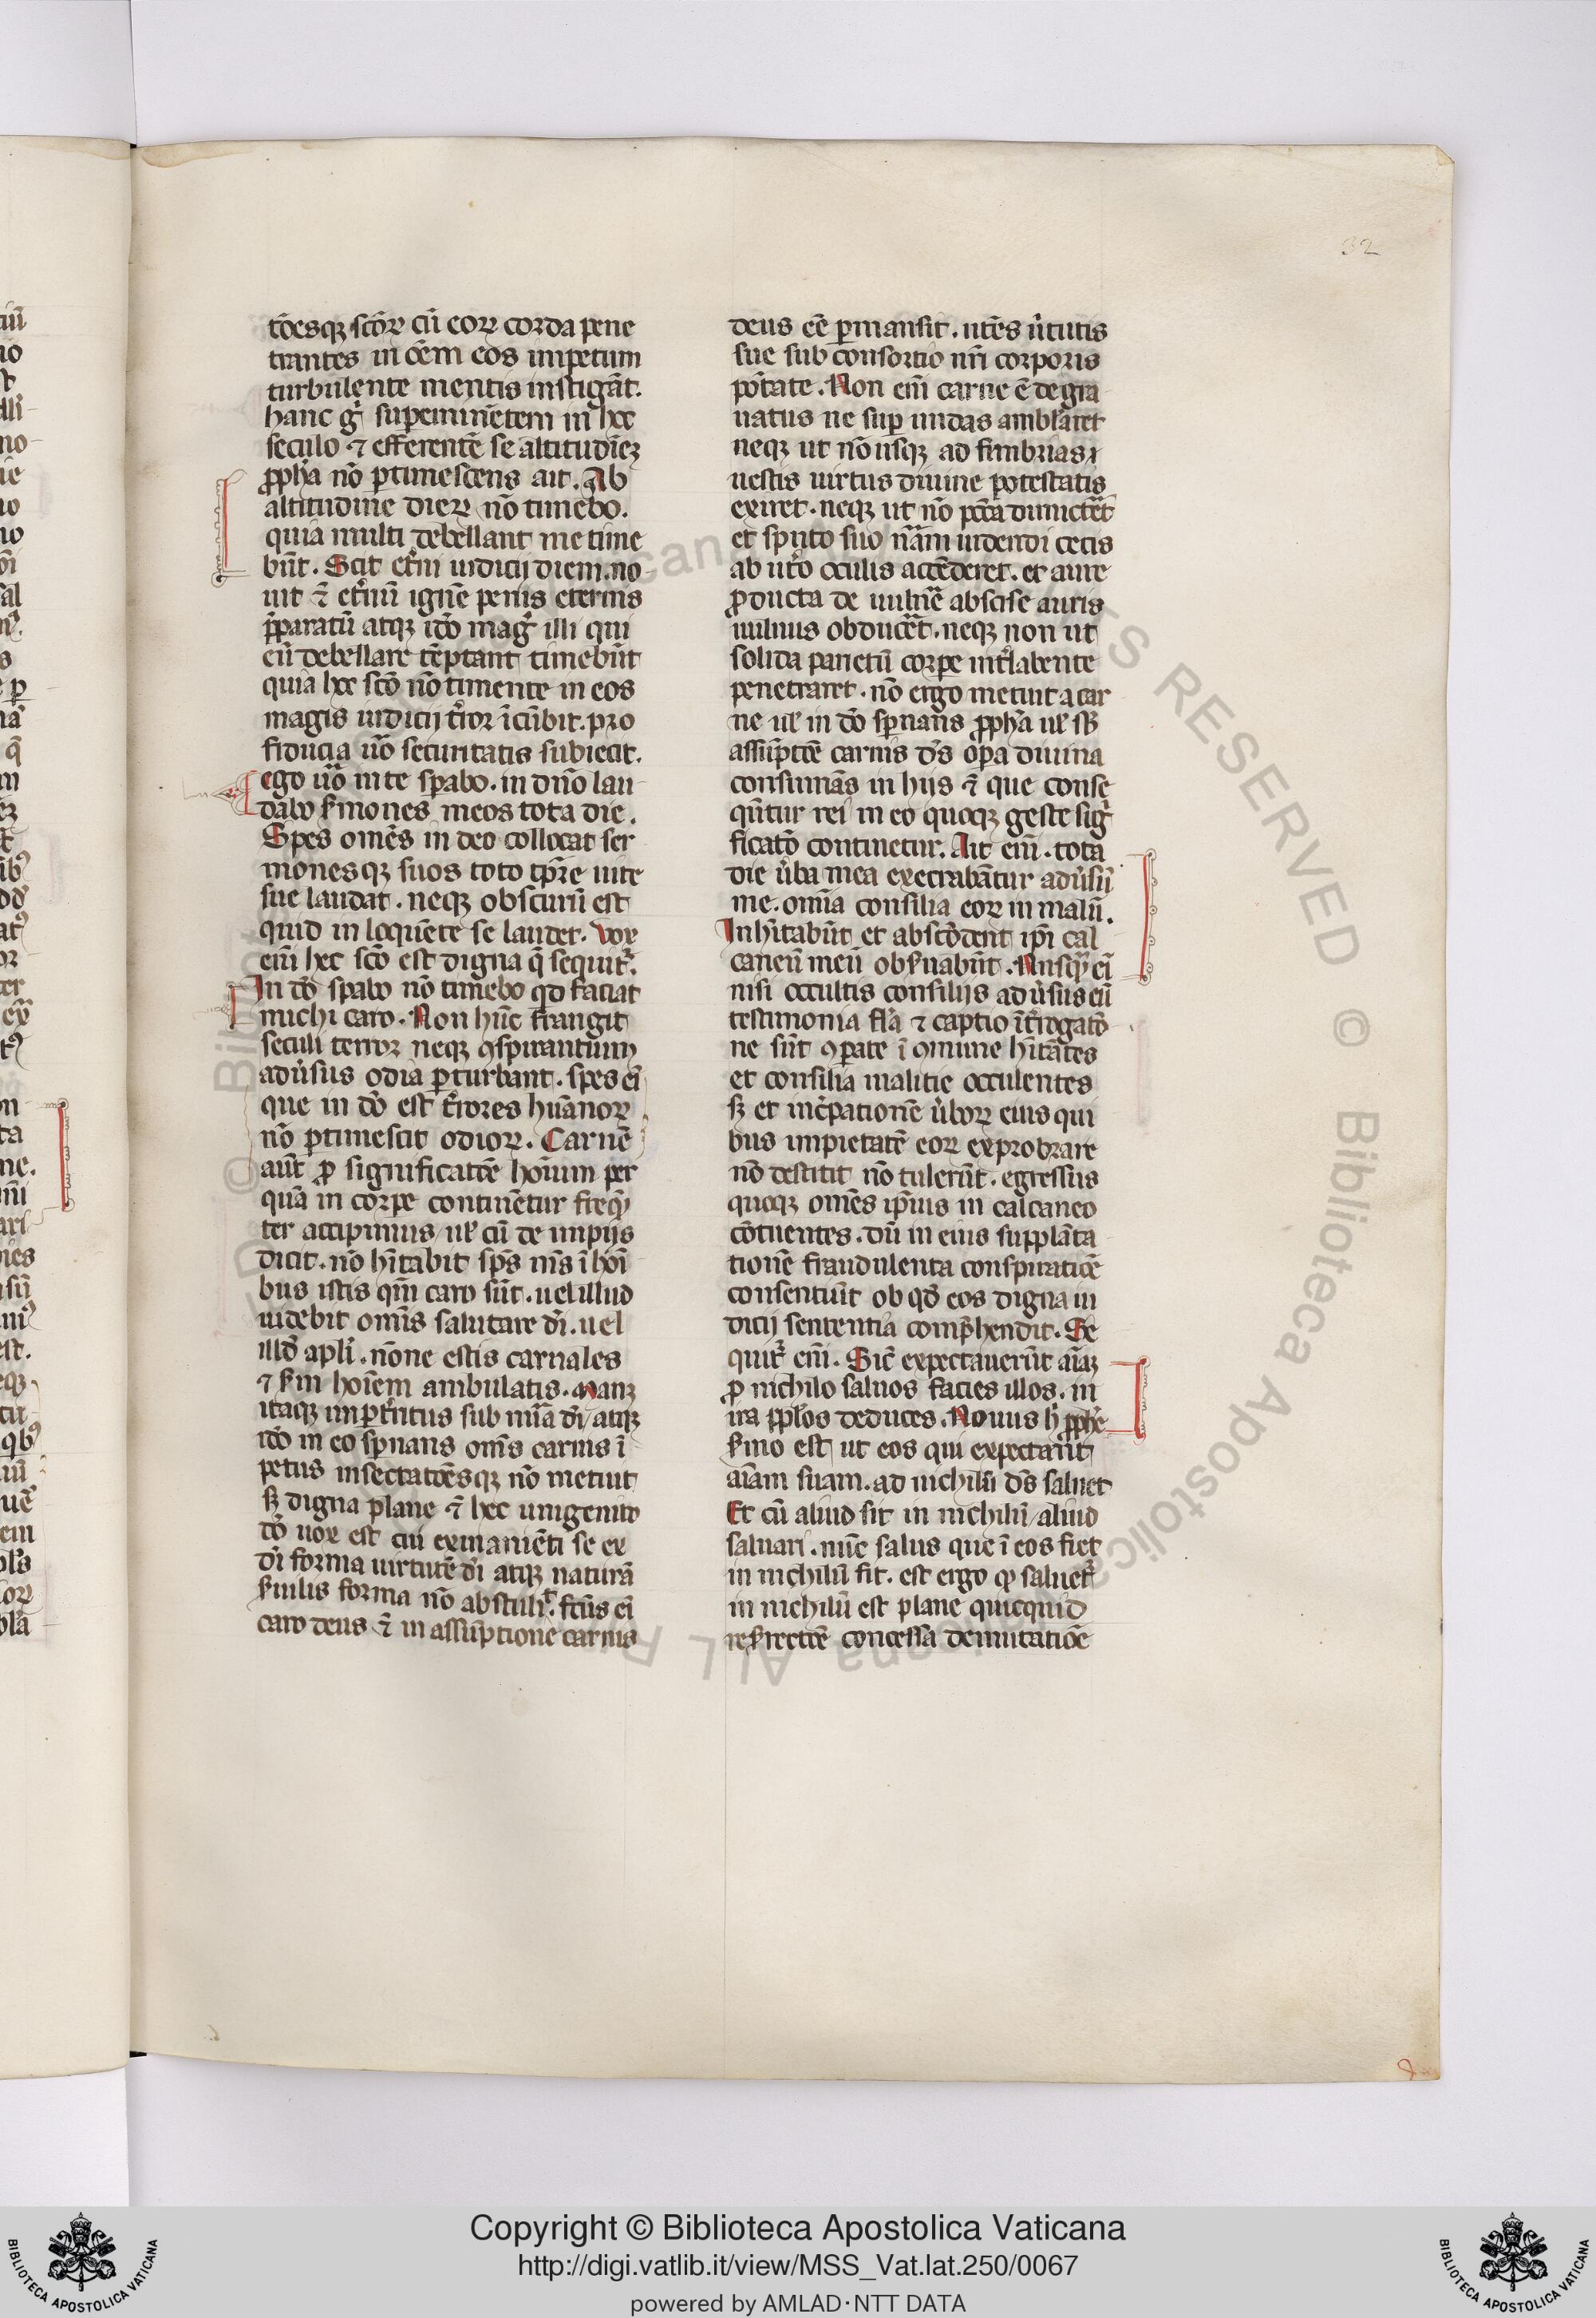 32
tōesqꝫ sctōꝝ cū eoꝝ corda pene
trantes in oēm eos impetum
turbulente mentis instigāt.
hanc gͥ supeminētem in hoc
seculo ⁊ efferentē se altitudīeꝫ
ꝓph̄a nō ꝑtimescens ait. Ab
altitudine dieꝝ nō timebo.
quia multi debellant me time
būt. Scit et̓ni iudicij diem. no
uit ⁊̄ et̓nū ignē penis eternis
p̄paratū atqꝫ idō mag̓ illi qui
eū debellare tēptant timebūt
quia hoc sctō nō timente in eos
magis iudicij t̓ror īcūbit. pro
fiducia ūo securitatis subiecit.
ego ūo in te sꝑabo. in dn̄o lau
dabo s̓mones meos tota die.
Spes omēs in deo collocat ser
monesqꝫ suos toto tp̄re uite
sue laudat. neqꝫ obscurū est
quid in loquēte se laudet. Vox
eīn hec sctō est digna q̄ sequit᷑.
In dō sꝑabo nō timebo qd faciat
michi caro. Non hūc frangit
seculi terror neqꝫ ꝯspirantium
adūsus odia ꝑturbant. spes eī
que in dō est t̓rores hūanoꝝ
nō ꝑtimescit odioꝝ. Carnē
aūt ꝓ significatōe hoīum per
quā in corꝑe continētur freqͣ̄
ter accipimus / ul̓ cū de impijs
dicit. nō hītabit sp̄s m̄s ī hoī
bus istis qm̄ caro sūt. uel illud
uidebit omīs salutare dī. uel
illd̓ apl̓i. nōne estis carnales
⁊ s̓m hoīem ambulatis. Manꝫ
itaqꝫ impt̓ritus sub mīa dī / atqꝫ
idō in eo sꝑnans om̄s carnis ī
petus insectatōesqꝫ nō metuit
sꝫ digna plane ⁊̄ hec unigenito
dō uox est cui exinaniēti se ex
dī forma uirtutē dī atqꝫ naturā
s̓uilis forma nō abstulit. fctūs eī
caro deus ⁊̄ in assūptione carnis
deus eē ꝑmansit. utēs ūtutis
sue sub consortio nr̄i corporis
pōtate. Non eīn carne ē degra
uatus ne suꝑ undas amblāret
neqꝫ ut nō usqꝫ ad fimbrias
uestis uirtus diuine potestatis
exiret. neqꝫ ut nō pctā dimictēt
et sputo suo nāam uidendi cecis
ab ut̓o occulis accēderet. et aure
ꝓducta de uulnē abscise auris
uulnus obducēt. neqꝫ non ut
solida parietū corꝑe int̓labente
penetraret. nō ergo metuit a car
ne ul̓ in dō sꝑnans ꝓph̄a ul̓ sb̄
assūptōe carnis dꝰs opa diuina
consumās in hijs ⁊̄ que conse
qūtur rei in eo quoqꝫ geste sigͥ
ficatō continetur. Ait eīn. tota
die ūba mea execrabātur adūsū
me. omīa consilia eoꝝ in malū.
Inhītabūt et abscōdent ipī cal
caneū meū obs̓uabūt. Nusqͣ̄ eī
nisi occultis consilijs adūsus eū
testimonia fl̓a ⁊ captio īt̓rogatō
ne sūt ꝯparate ī ꝯmune hītātes
et consilia malitie occulentes
sꝫ et inc̓patiōne ūboꝝ eius qui
bus impietatē eoꝝ exprobrare
nō destitit nō tulerūt. egressus
quoqꝫ omēs ipīus in calcaneo
cōtuentes. dū in eius supplāta
tionē fraudulenta conspiratiōe
consentiūt ob qd̓ eos digna iu
dicij sententia comp̄hendit. Se
quit᷑ eīn. Sic̄ expectauerūt aīaꝫ
ꝓ nichilo saluos facies illos. in
ira ppl̓os deduces. Nouus hͥ ꝓph̄e
s̓mo est ut eos qui expectarūt
aīam suam. ad nichilū dꝰs saluet
Et cū aliud sit in nichilū / aliud
saluari. nūc salus que ī eos fiet
in nichilū fit. est ergo qꝙ saluet᷑
in nichilū est plane quicquid
res̓rectōe concessa demutatiōe
Copyright © Biblioteca Apostolica Vaticana
http://digi.vatlib.it/view/MSS_Vat.lat.250/0067
powered by AMLAD·NTT DATA
BIBLIOTECA APOSTOLICA VATICANA
BIBLIOTECA APOSTOLICA VATICANA